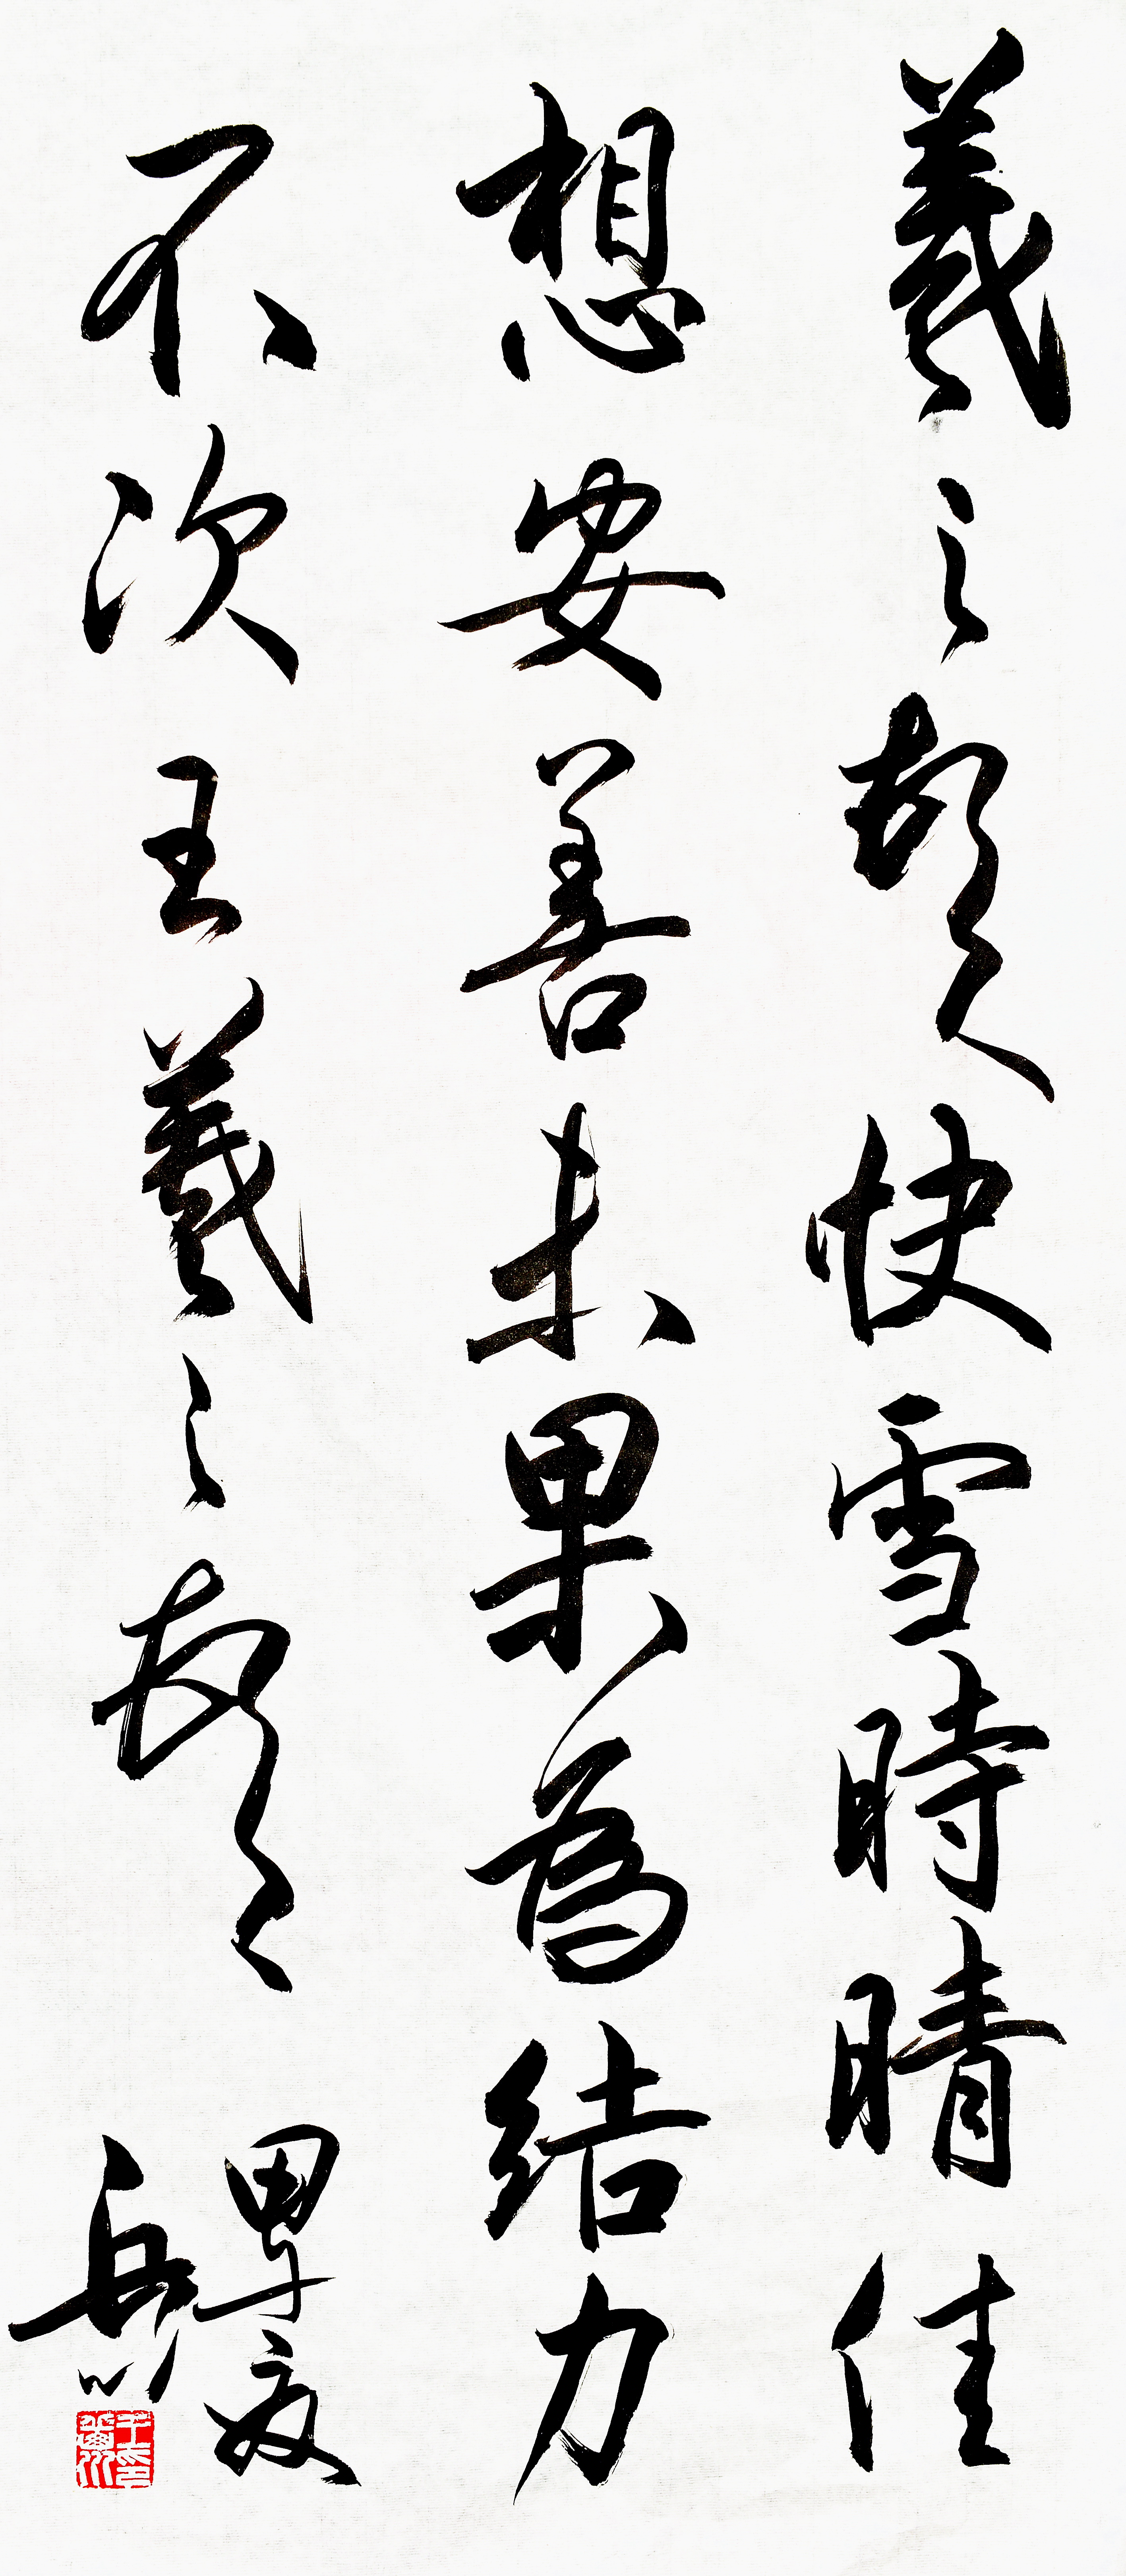 羲之頓首快雪時晴佳
想安善未果為結力
不次王羲之頓首